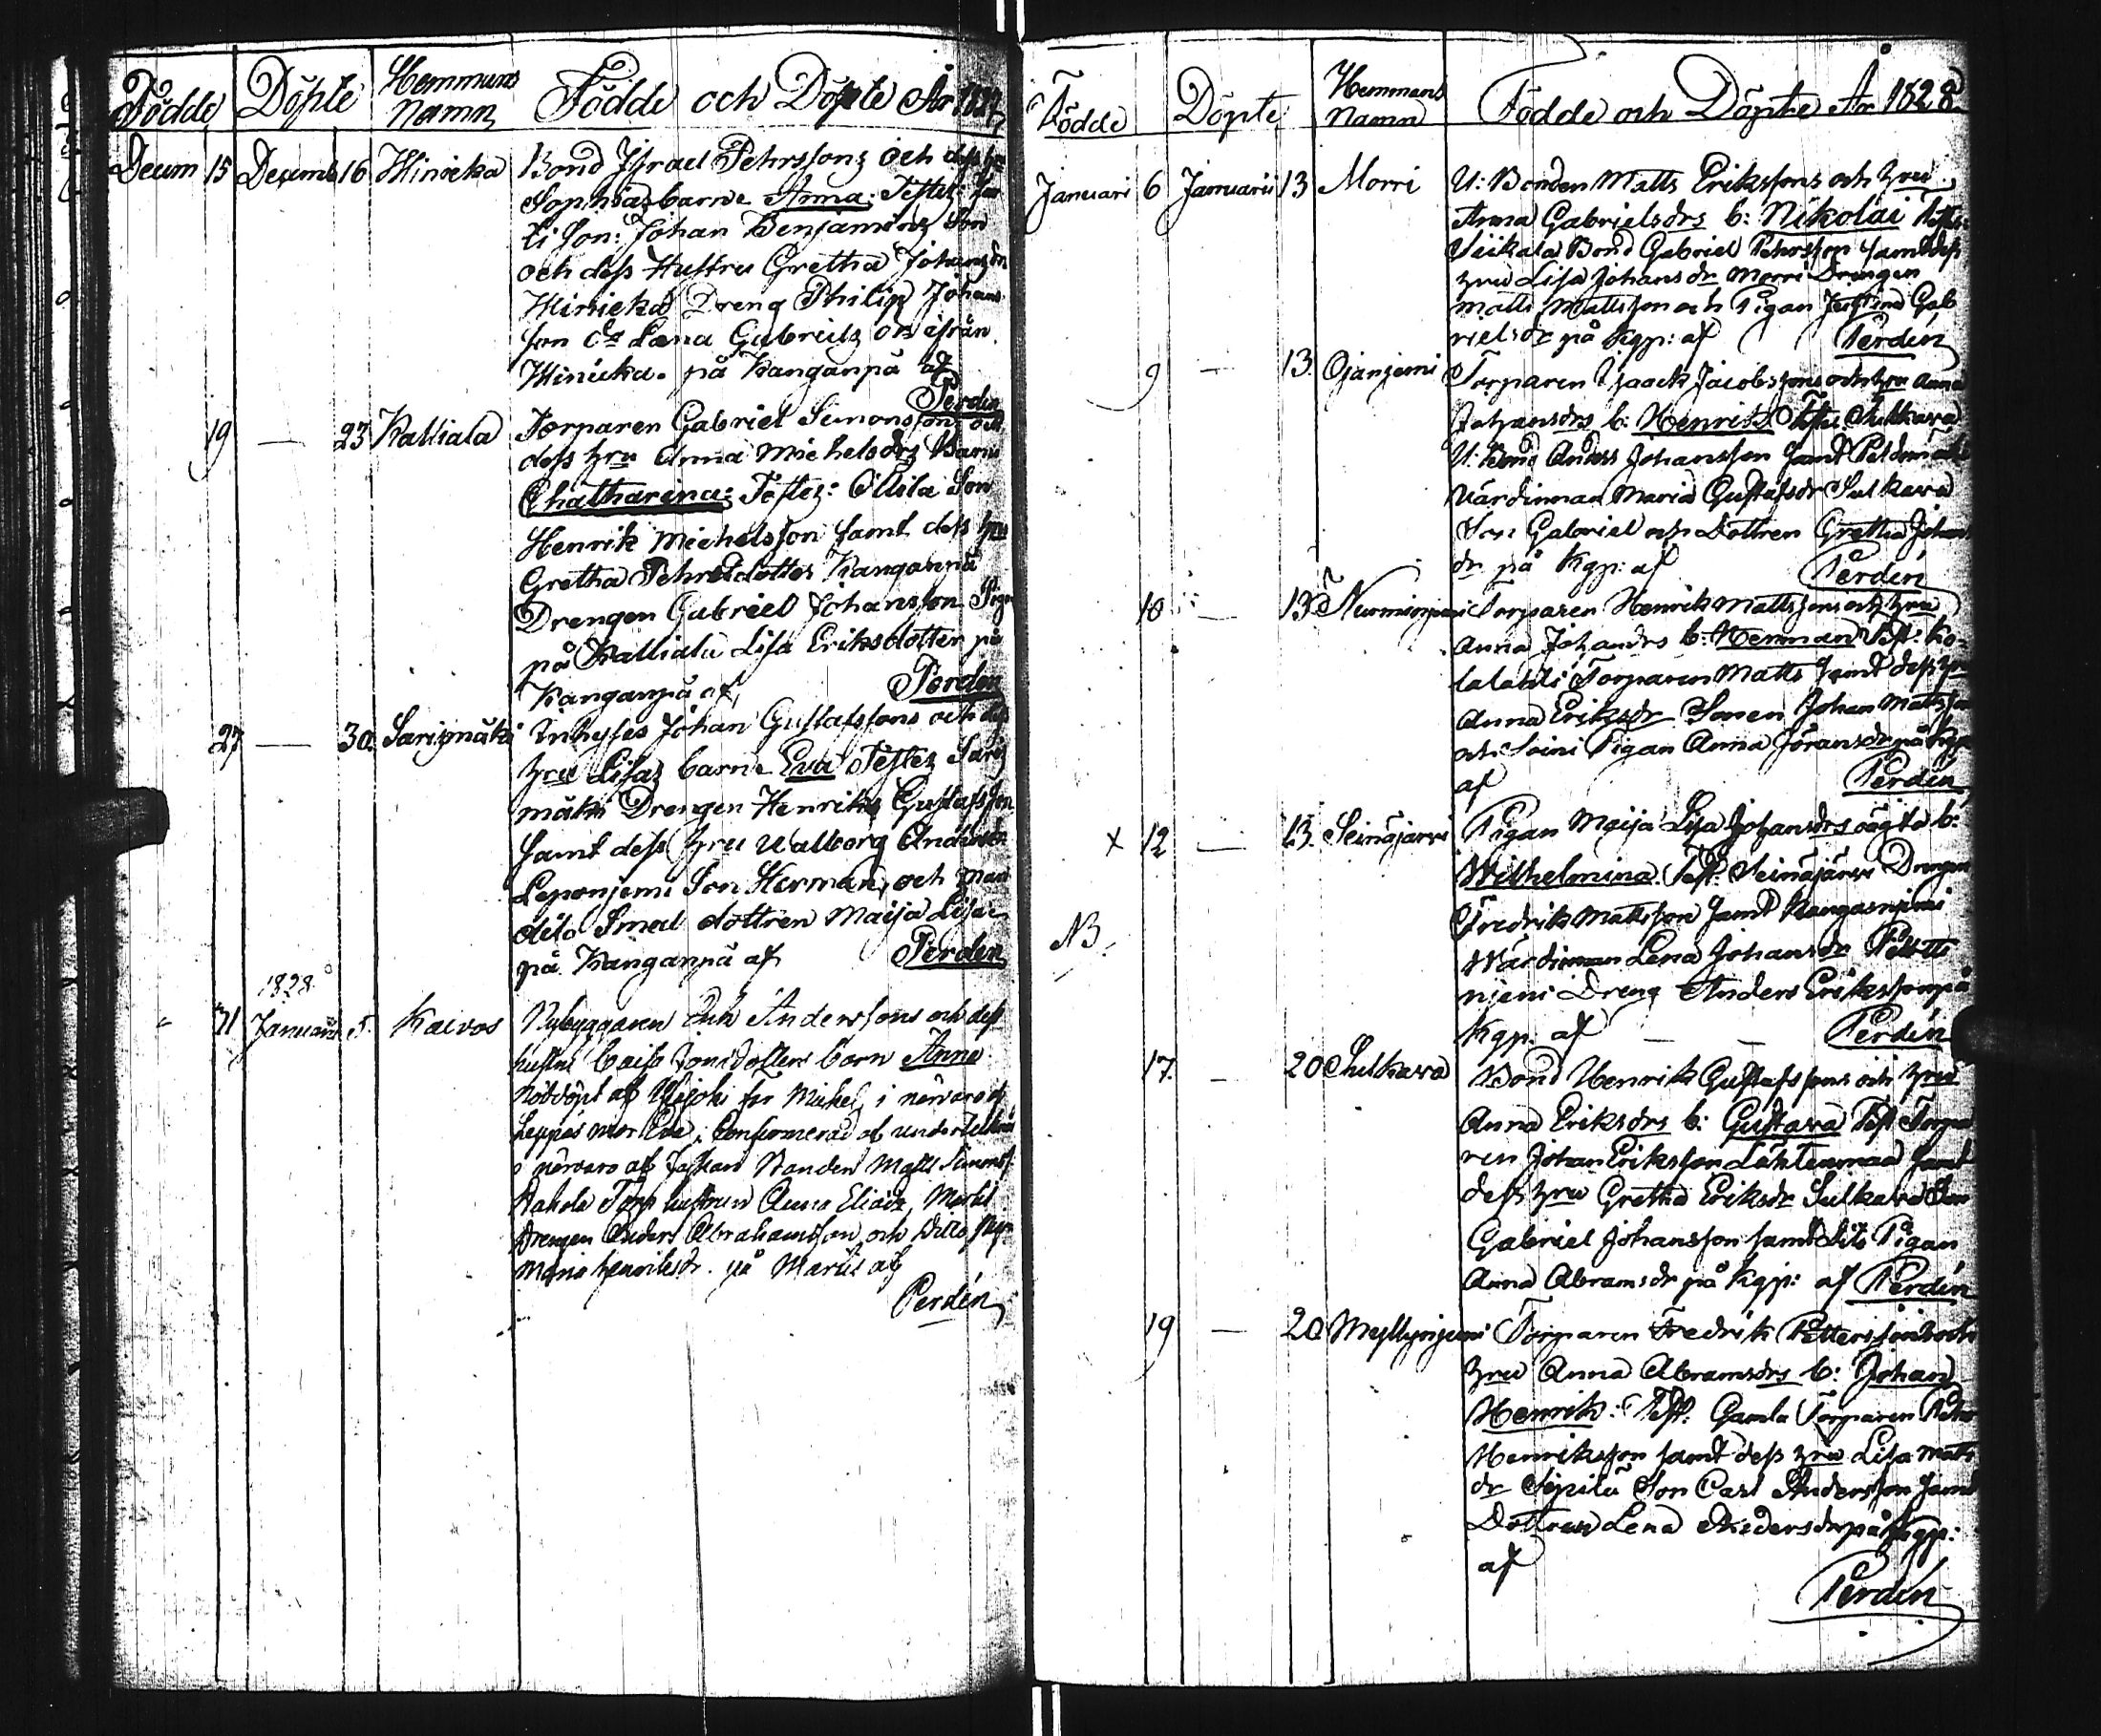 Födde Döpte Hemmans Namn Födde och Döpte År 1827
Decem 15 Decemb 16 Hinicka Bond Israel Pehrssons och dess
Sophias barne Anna. Testes:
li Son: Johan Benjamins Son
och dess Hustru Gretha Johansdr
Hinicka Dreng Philip Johans
son do Lena Gabriels dr ifrån
Hinicka. på Kanganpä af
Perdén
19 — 23 Kalliala Torparen Gabriel Simonssons och
dess hru Anna Michelsdrs Barn
Chatharina: Testes: Ollila Son
Henrik Michelsson samt dess hru
Gretha Pehrsdotter Kanganpä
Drengen Gabriel Johansson Pigan
på Kalliala Lisa Eriksdotter på
Kanganpä af Perdén
27 — 30 Sarismäki Inhyses Johan Gustafssons och dess
hru Lisas barne Eva Testes Saris
mäki Drengen Henriks Gustafsson
samt dess hru Walborg Andersdr
Leponjemi Son Herman, och
dito Smed dottren Maija Lisa
på Kanganpä af Perdén
1828
31 Januarii 5. Kaivos Nybyggaren Erik Anderssons och dess
hustru Caisa Jonsdotters barn Anna
nöddöpt af Ylijoki far Mickel i närvaro af
Leppäs mor Eva; Confirmerad af undertecknad
i närvaro af Bonden Matts Simonss.
Torp hustrun Anna Eliaedr,
Drengen Anders Abrahamsson och ditto Pig.
Maria Henriksdr. på af
Perdén
Födde Döpte Hemmans Namn Födde och Döpte År 1828
Januari 6 Januarii 13 Morri U: Bonden Matts Erikssons och hru
Anna Gabrielsdrs b: Nikolai Testes
Siikala Bond Gabriel Pehrsson samt dess
hru Lisa Johansdr Morri Drengen
Matts Mattsson och Pigan Justina Gab
rielsdr på Kgp: af Perdén
9 — 13. Ojanjemi Torparen Isaack Jacobssons och hru Anna
Johansdrs b: Henrik Test. Sulkava
U: Bond Anders Johansson samt Peldomäki
Värdinnan Maria Gustafsdr Sulkava
Son Gabriel och Dottren Gretha Johans
dr på Kgp: af Perdén
10 — 13 Nurminjemi Torparen Henrik Mattssons och hru
Anna Johansdrs b: Herman Test: Ko-
lalahti Torparen Matts samt dess hru
Anna Eriksdr Sonen Johan Mattsson
och Soini Pigan Anna Göransdr på Kgp
af Perdén
x 12 — 13. Seinäjärvi Pigan Maija Lisa Johansdrs oägta b:
Wilhelmina. Test. Seinäjärvi Drengen
Fredrik Mattsson samt Kangasnjemi
NB. Wärdinnan Lena Johansdr
njemi Dreng Anders Eriksson på
Kgp: af — — Perdén
17. — 20 Sulkava Bond Henrik Gustafssons och hru
Anna Eriksdrs b: Gustava Test Torpa
ren Johan Eriksson Lähtenmaa samt
dess hru Gretha Eriksdr Sulkava Son
Gabriel Johansson samt dito Pigan
Anna Abramsdr på Kgp: af Perdén
19 — 20 Myllynjemi Torparen Fredrik Petterssons och
hru Anna Abramsdrs b: Johan
Henrik: Test: Gamla Torparen Pehr
Henriksson samt dess hru Lisa Matts
dr Sippilä Son Carl Andersson samt
Dottren Lena Andersdr på Kgp:
af
Perdén